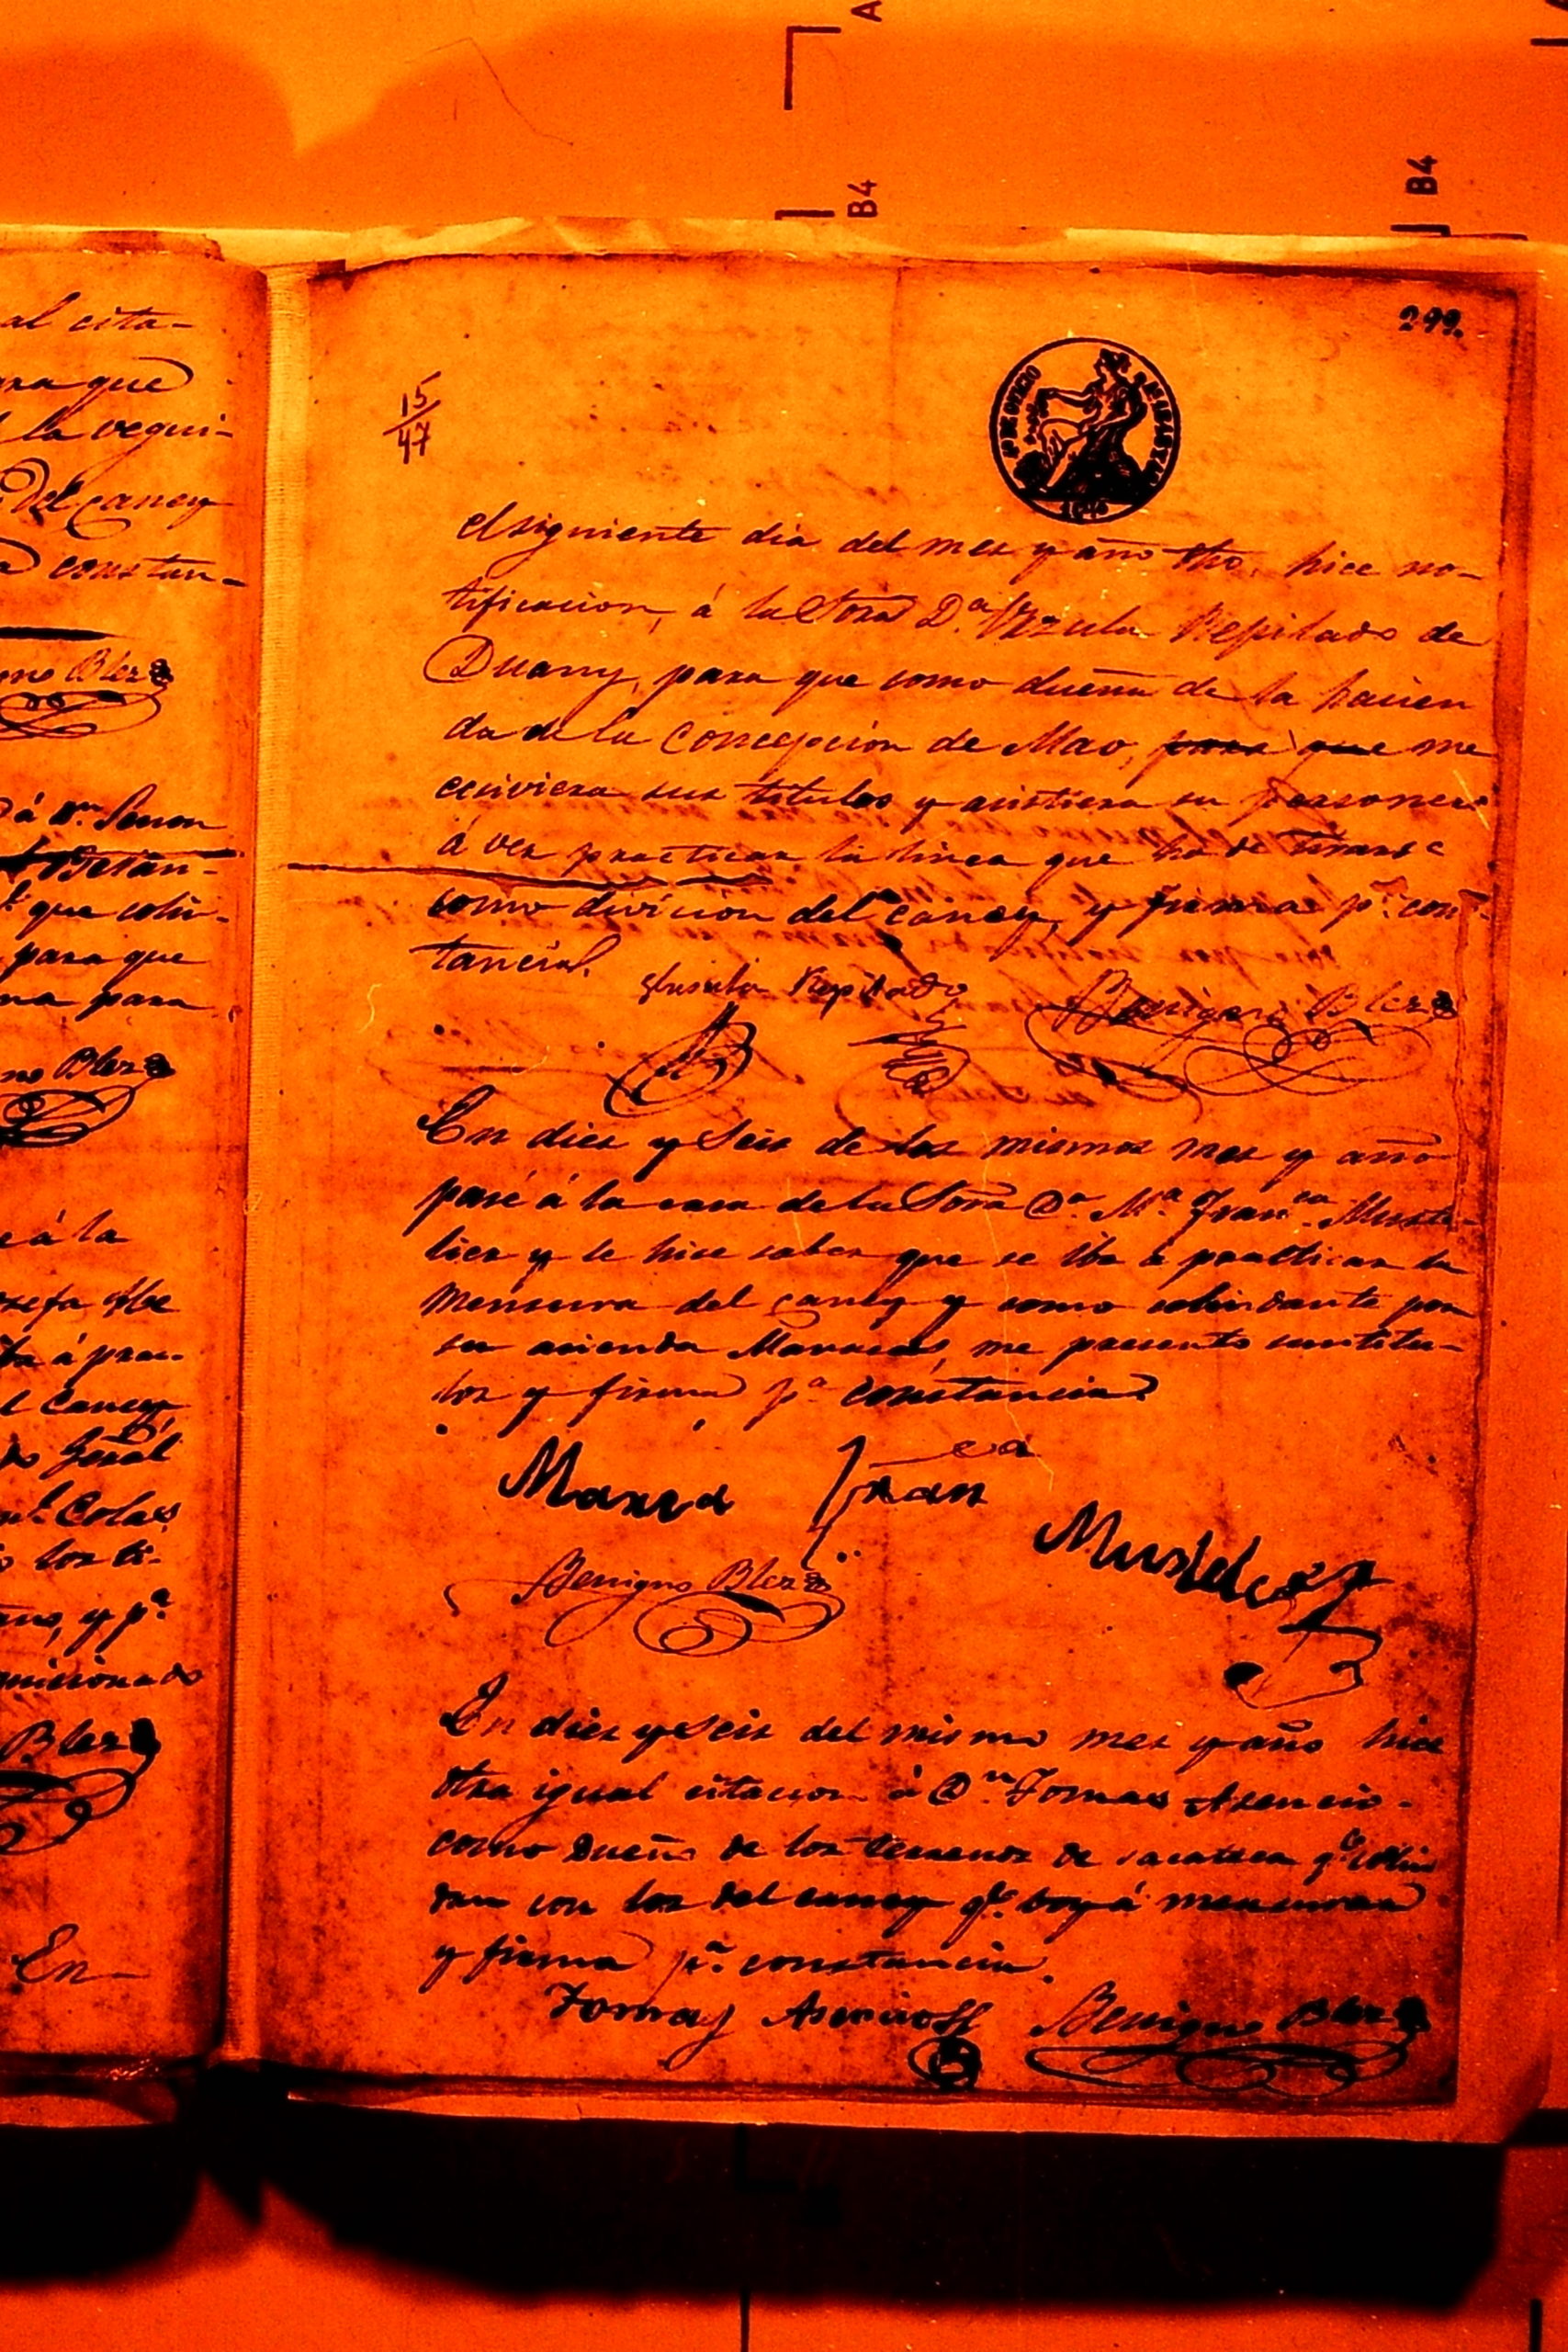 A
B4
B4
al cita-
ara que
la vegui-
del caney
constan-
Benigno Blez
á Dn. Simon
Betan-
que colin-
para que
ma para
no Blez
e á la
osefa Abe
iba á prac-
l Caney
Gral
Colas
los ti-
y pa.
misionado
Blez
En
299.
15
47
el siguiente dia del mes y año dho. hice no-
tificacion, á la Sora Da. Urzula Repilado de
Duany, para que como dueña de la hacien
da de la Concepcion de Mao, para que me
ecsiviera sus titulos y asistiera su personero
á ver practicar la linea que ha de tirarse
como divicion del caney, y firma pa. cons-
tancia.
Ursula Repilado
Benigno Blez
En diez y Seis de los mismos mes y año
pasé á la casa de la Sora Da. Ma. Franca. Muste-
lier y le hice saber que se iba á practicar la
mensura del caney y como colindante por
su acienda Maracas, me presento sus titu-
los y firma pa. constancia
Maria Franca
Mustelier
Benigno Blez
En diez y Seis del mismo mes y año hice
otra igual citacion á Dn. Tomas Asencio-
como Dueño de los terrenos de sacateca qe. colin
dan con los del caney qe. boy á mensurar
y firma pa. constancia.
Tomas Asencio
Benigno Blez